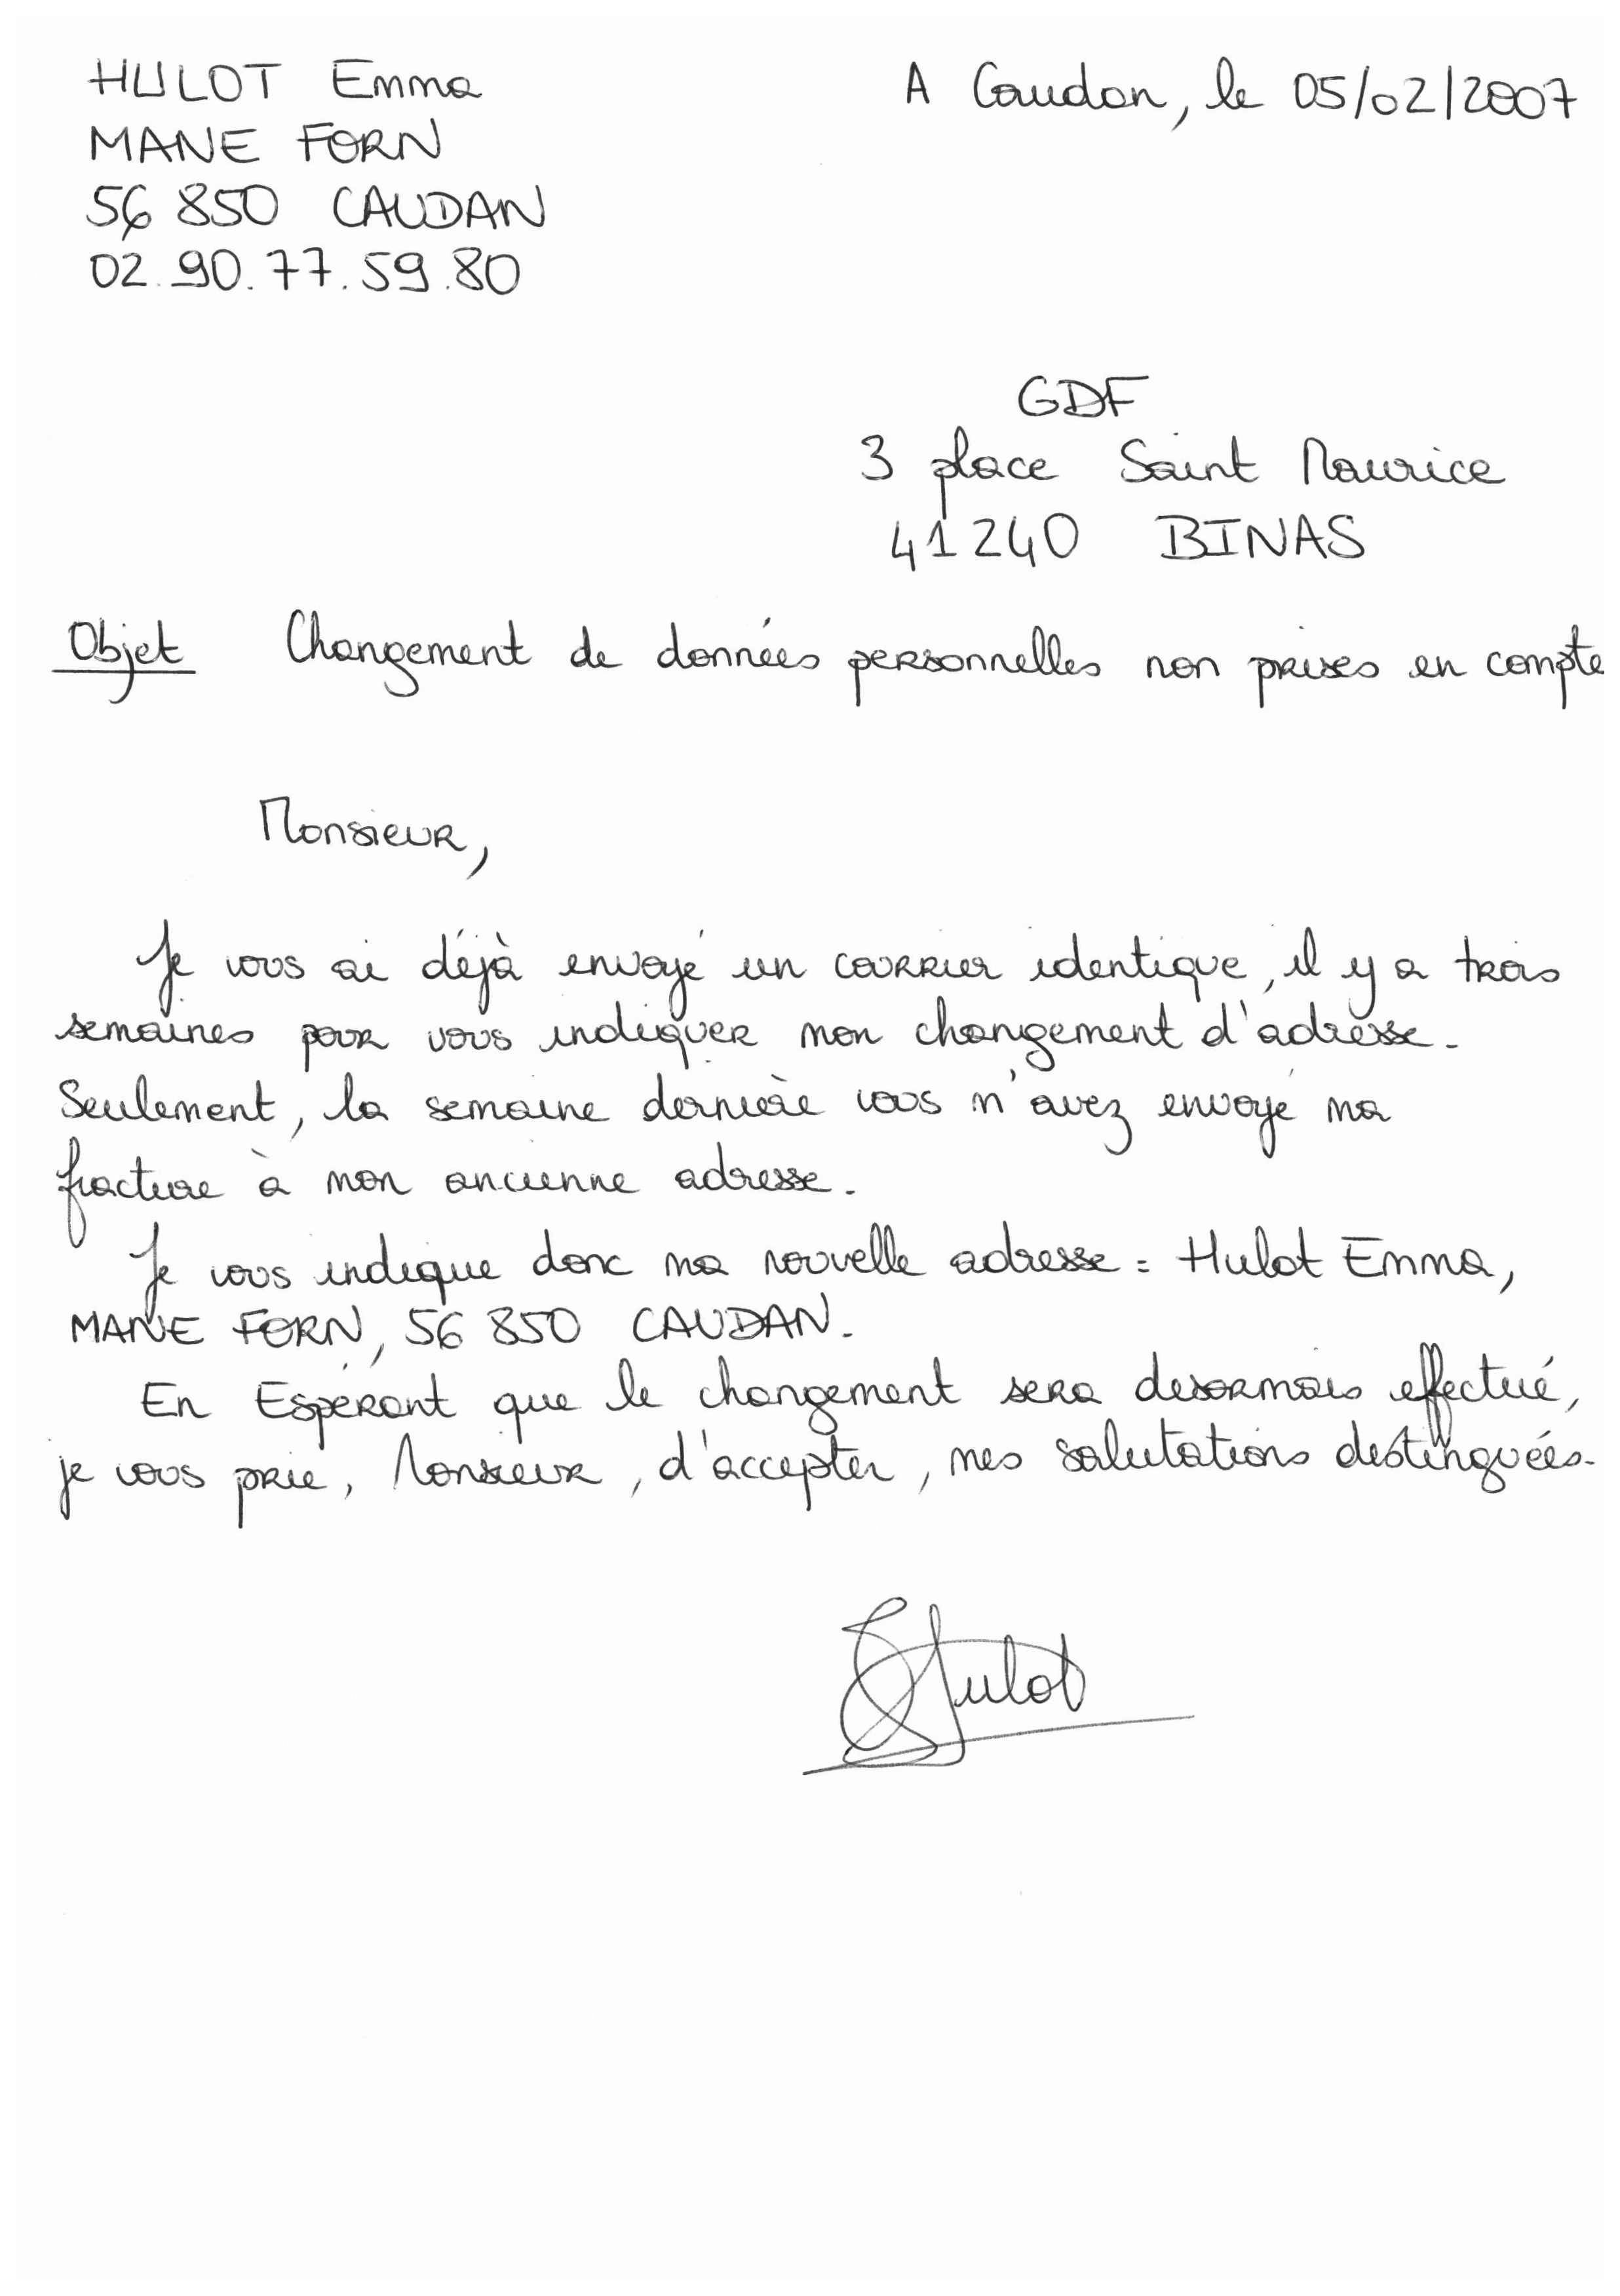 HULOT Emma
A Caudan, le 05/02/2007
MANE FORN
56 850 CAUDAN
02.90.77.59.80
GDF
3 place Saint Maurice
41240 BINAS
Objet Changement de données personnelles non prises en compte
Monsieur,
Je vous ai déjà envoyé un courrier identique, il y a trois
semaines pour vous indiquer mon changement d'adresse.
Seulement, la semaine dernière vous m'avez envoyé ma
facture à mon ancienne adresse.
Je vous indique donc ma nouvelle adresse : Hulot Emma,
MANE FORN, 56 850 CAUDAN.
En Espérant que le changement sera desormais effectué,
je vous prie, Monsieur, d'accepter, mes salutations distinguées.
EHulot